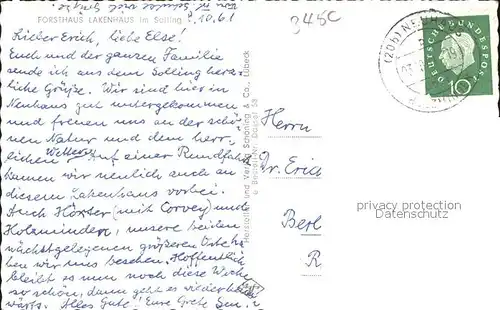 FORSTHAUS LAKENHAUS im Solling
8.10.61
348C
Lieber Erich, liebe Else!
Euch und der ganzen Familie
sende ich aus dem Solling herz-
liche Grüße. Wir sind hier in
Neuhaus gut untergekommen
und freuen uns an der schö-
nen Natur und dem herr-
lichen Wetter. Auf einer Rundfahrt
kamen wir neulich auch an
diesem Lakenhaus vorbei.
Auch Höxter (mit Corvey) und
Holzminden, unsere beiden
nächstgelegenen größeren Orte
wir uns besehen. Hoffentlich
bleibt es nun noch diese Woche
so schön, dann geht es wieder heim-
wärts. Alles Gute! Eure Grete
Hersteller und Verlag Schöning & Co., Lübeck
Herrn
Dr. Eric
Berl
R
DEUTSCHE BUNDESPOST
10
(20b) NEUH
PicClick Exclusive